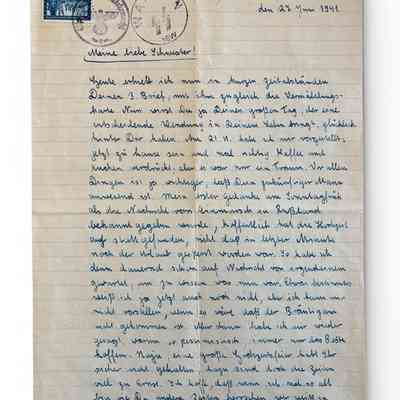 den 27. Juni 1941
Meine liebe Schwester!
Heute erhielt ich nun in kurzen Zeitabständen
Deinen 3. Brief, mit ihm zugleich die Vermählungs-
karte. Nun wirst Du ja Deinen großen Tag, der eine
entscheidende Wendung in Deinem Leben bringt, glücklich
hinter Dir haben. Am 21. 6. habe ich mir vorgestellt,
jetzt zu Hause sein und mal richtig Kaffee und
Kuchen aber es war nur ein Traum. Vor allen
Dingen ist ja wichtiger, daß Dein zukünftiger Mann
anwesend ist. Mein erster Gedanke am Sonntag früh
als die Nachricht vom Einmarsch in Rußland
bekannt gegeben wurde, hoffentlich hat die Hochzeit
auch stattgefunden, nicht daß in letzter Minute
noch der Urlaub gesperrt worden war. So habe ich
denn dauernd schon auf Nachricht von
gewartet, um zu wissen was nun war. Etwas bestimmtes
weiß ich ja jetzt auch noch nicht, aber ich kann mir
nicht vorstellen, wenn es wäre daß der Bräutigam
nicht gekommen ist. Aber dann habe ich mir wieder
gesagt, warum so pessimistisch immer nur das Beste
hoffen. Na ja eine große Hochzeitsfeier habt Ihr
sicher nicht gehalten, dazu sind doch die Zeiten
viel zu ernst. Ich hoffe, daß wenn ich mal so alt
bin wie Du andere Zeiten herrschen